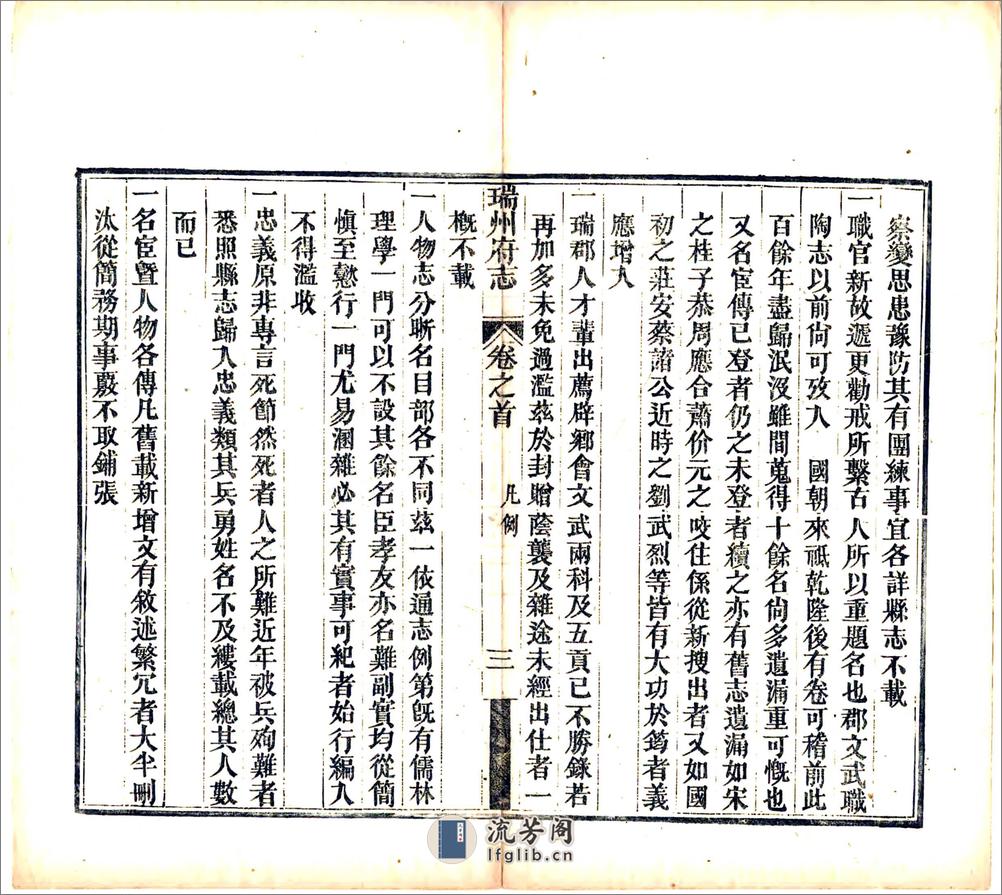 察變思患豫防其有團練事宜各詳縣志不載
一職官新故遞更勸戒所繫古人所以重題名也郡文武職
陶志以前尙可攷入　國朝來祗乾隆後有卷可稽前此
百餘年盡歸泯沒雖間蒐得十餘名尙多遺漏重可慨也
又名宦傳已登者仍之未登者續之亦有舊志遺漏如宋
之桂子恭周應合蕭价元之咬住係從新搜出者又如國
初之莊安蔡諸公近時之劉武烈等皆有大功於筠者義
應增入
一瑞郡人才輩出薦辟鄉會文武兩科及五貢已不勝錄若
再加多未免過濫茲於封贈蔭襲及雜途未經出仕者一
瑞州府志　卷之首　凡例　三
槪不載
一人物志分晰名目部各不同茲一依通志例第旣有儒林
理學一門可以不設其餘名臣孝友亦名難副實均從簡
愼至懿行一門尤易溷雜必其有實事可紀者始行編入
不得濫收
一忠義原非專言死節然死者人之所難近年被兵殉難者
悉照縣志歸入忠義類其兵勇姓名不及縷載總其人數
而已
一名宦曁人物各傳凡舊載新增文有敘述繁冗者大半刪
汰從簡務期事覈不取鋪張
流芳阁
lfglib.cn